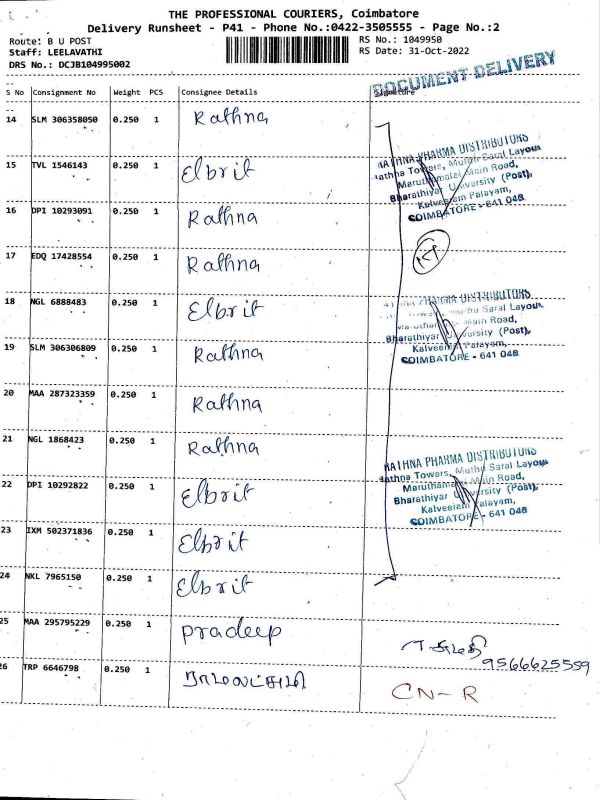 THE PROFESSIONAL COURIERS, Coimbatore
Delivery Runsheet - P41 - Phone No.:0422-3505555 - Page No.:2
Route: B U POST
Staff: LEELAVATHI
DRS No.: DCJB104995002
RS No.: 1049950
RS Date: 31-Oct-2022
DOCUMENT DELIVERY
S No Consignment No Weight PCS Consignee Details Signature
14 SLM 306358050 0.250 1 Rathna
15 TVL 1546143 0.250 1 Elbrit
16 DPI 10293091 0.250 1 Rathna
17 EDQ 17428554 0.250 1 Rathna
18 NGL 6888483 0.250 1 Elbrit
19 SLM 306306809 0.250 1 Rathna
20 MAA 287323359 0.250 1 Rathna
21 NGL 1868423 0.250 1 Rathna
22 DPI 10292822 0.250 1 Elbrit
23 IXM 502371836 0.250 1 Elbrit
24 NKL 7965150 0.250 1 Elbrit
25 MAA 295795229 0.250 1 pradeep
9566625559
26 TRP 6646798 0.250 1 ராமலட்சுமி CN-R
RATHNA PHARMA DISTRIBUTORS
Rathna Towers, Muthu Saral Layout
Maruthamalai Main Road,
Bharathiyar University (Post),
Kalveeram Palayam,
COIMBATORE - 641 046
RATHNA PHARMA DISTRIBUTORS
Rathna Towers, Muthu Saral Layout
Maruthamalai Main Road,
Bharathiyar University (Post),
Kalveeram Palayam,
COIMBATORE - 641 046
RATHNA PHARMA DISTRIBUTORS
Rathna Towers, Muthu Saral Layout
Maruthamalai Main Road,
Bharathiyar University (Post),
Kalveeram Palayam,
COIMBATORE - 641 046